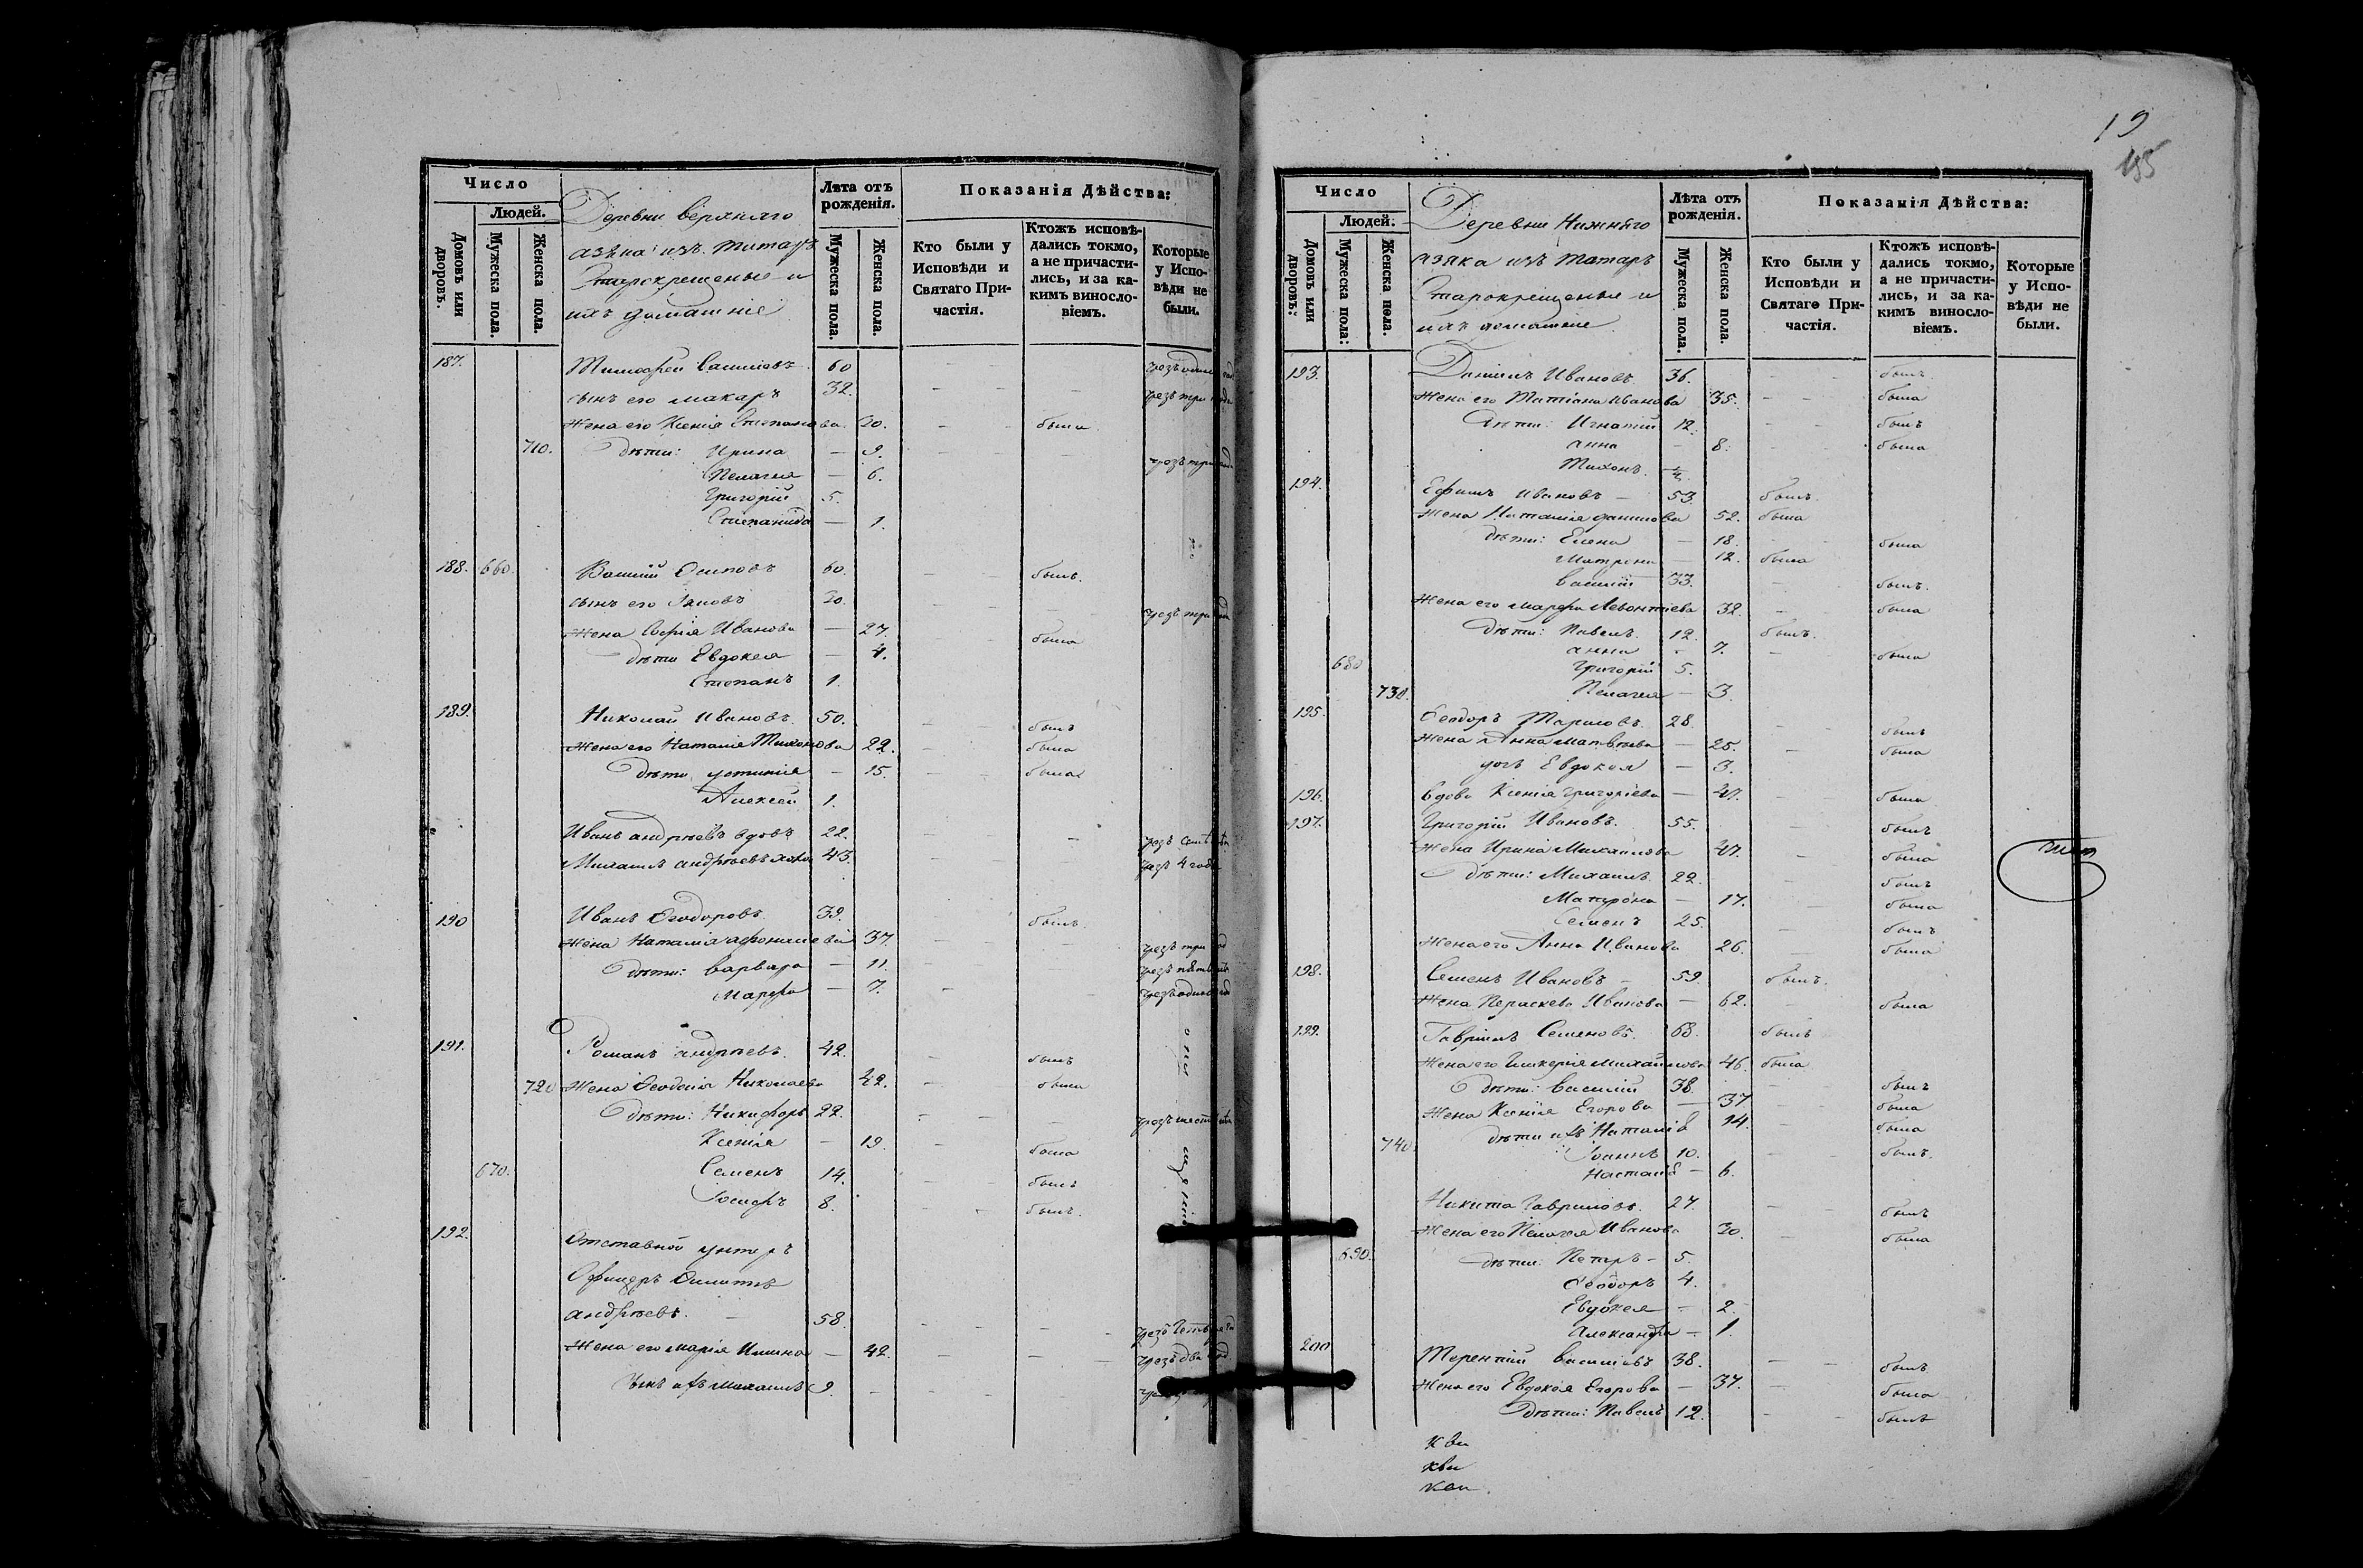 Число
Людей.
Домовъ или дворовъ.
Мужеска пола.
Женска пола.
Деревни верхняго
азяка изъ татаръ
Старокрещеные и
ихъ домашніе
Лѣта отъ рожденія.
Мужеска пола.
Женска пола.
Показанія Дѣйства:
Кто были у Исповѣди и Святаго Причастія.
Ктожъ исповѣдались токмо, а не причастились, и за какимъ винословіемъ.
Которые у Исповѣди не были.
187. Тимофей Василовъ 60
сынъ его Макаръ 32. чрезъ три года
Жена его Ксенія Степанова 20. была
710. дѣти: Ирина — 9.
Пелагея — 6.
Григорій 5.
Степанида — 1.
188. 660. Василій Осиповъ 60. былъ.
сынъ его Яковъ 20. чрезъ три
Жена Софія Иванова — 27. была
дѣти Евдокея — 4.
Степанъ 1.
189. Николай Ивановъ 50. былъ
Жена его Наталія Тихонова 22. была
дѣти устинія — 15. была
Алексей 1.
Иванъ андрѣевъ вдовъ 22.
Михаилъ андрѣевъ 43. чрезъ 4 года
190 Иванъ Ѳеодоровъ 39. былъ.
Жена Наталія афонасиева 37. чрезъ три
дѣти: варвара — 11.
Марфа — 7.
191. Романъ андрѣевъ. 42. былъ
720 Жена Ѳеодосія Николаева 42. была
Дѣти: Никифоръ 22.
Ксенія — 19. была
670. Семенъ 14. былъ
Іосифъ 8. былъ.
192. Отставной унтеръ
Офицеръ
андрѣевъ. — 58.
Жена его марія — 42.
сынъ ихъ михаилъ 9.
19
195
Число
Людей.
Домовъ или дворовъ:
Мужеска пола:
Женска пола.
Деревни Нижняго
азяка изъ татаръ
Старокрещеные и
ихъ домашніе
Лѣта отъ рожденія.
Мужеска пола.
Женска пола.
Показанія Дѣйства:
Кто были у Исповѣди и Святаго Причастія.
Ктожъ исповѣдались токмо, а не причастились, и за какимъ винословіемъ.
Которые у Исповѣди не были.
193. Данилъ Ивановъ 36. былъ
Жена его Татіана Иванова 35. была
Дѣти: Игнатій 12. былъ
анна — 8. была
Тихонъ
194. Ефимъ Ивановъ — 53. былъ.
Жена Наталія данилова 52. была
дѣти: Елена — 18. была
Матрена — 12. была
Василій 33. былъ.
Жена его марфа Леонтіева 32. была
Дѣти: Павелъ 12. былъ.
анна - 7. была
680 Григорій 5.
730. Пелагея — 3
195. Ѳеодоръ 28. былъ
Жена Анна Матвѣева — 25. была
дочь Евдокея — 3.
196. вдова Ксенія Григоріева — 47. была
197. Григорій Ивановъ. 55. былъ
Жена Ирина Михайлова 47. была
дѣти: Михаилъ 22. былъ
Матрона — 17. была
Семенъ 25. былъ
Жена его Анна Иванова 26. была
198. Семенъ Ивановъ — 59. былъ.
Жена Параскева Иванова — 62. была
199. Гавріилъ Семеновъ. 68. былъ
Жена его Гликерія Михайлова 46. была
дѣти: Василій 38. былъ
Жена Ксенія Егорова — 37 была
дѣти ихъ Наталія 14. была
740. Іоаннъ 10. былъ.
Настасія — 6.
Никита Гавриловъ. 27. былъ
Жена его Пелагея Иванова 30. была
690. дѣти: Петръ - 5.
Ѳеодоръ 4.
Евдокея — 2.
Александра — 1.
200 Терентій Василіевъ 38. былъ
Жена его Евдокея Егорова — 37. была
Дѣти: Павелъ 12. былъ